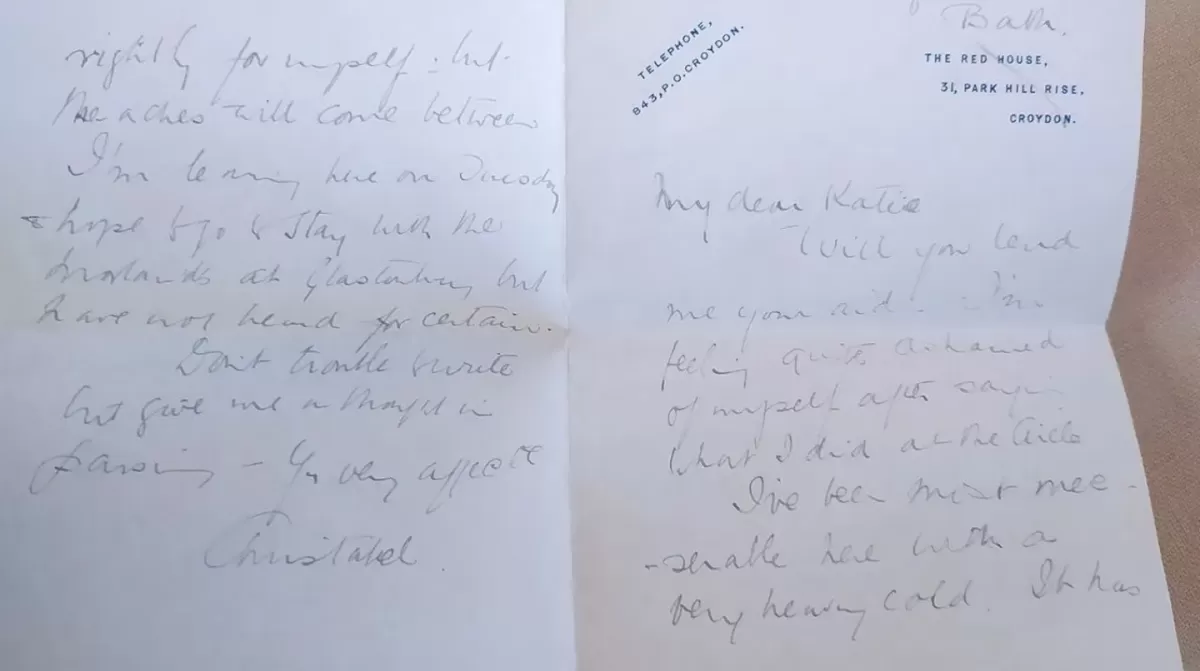 TELEPHONE,
843, P.O. CROYDON.
Bath.
THE RED HOUSE,
31, PARK HILL RISE,
CROYDON.
My dear Katie
Will you lend
me your aid. I'm
feeling quite ashamed
of myself after saying
what I did at the Circle
I've been most mee-
-serable here with a
very heavy cold. It has
rightly for myself: but
the aches will come between
I'm leaving here on Tuesday
& hope to go & stay with the
at Glastonbury but
have not heard for certain.
Don't trouble to write
but give me a thought in
passing - Yr very affecte
Christabel.